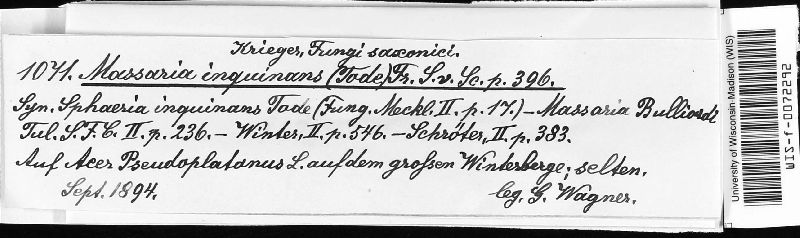 Krieger, Fungi saxonici.
1071. Massaria inquinans (Tode) Fr. S. v. Sc. p. 396.
Syn. Sphaeria inquinans Tode (Fung. Meckl. II. p. 17.) – Massaria Bulliardi
Tul. S. F. C. II. p. 236. – Winter, II. p. 546. – Schröter, II. p. 383.
Auf Acer Pseudoplatanus L. auf dem grossen Winterberge; selten.
Sept. 1894. leg. G. Wagner.
University of Wisconsin-Madison (WIS)
WIS-f-0072292